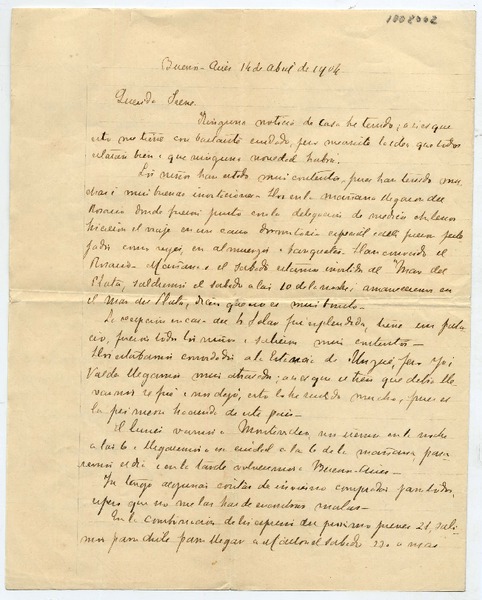 1002002
Buenos-Aires 14 de Abril de 1904
Querido Irene
Ninguna noticia de casa he tenido; asi es que
esto me tiene con bastante cuidado, pero me asiste la idea que todos
estarán bien i que ninguna novedad habrá.
Los niños han estado mui contentos, pues han tenido mu
chas i mui buenas invitaciones. Hoi en la mañana llegaron del
Rosario donde fueron junto con la delegacion de medicos chilenos
hicieron el viaje en un carro dormitorio especial
como reyes, en almuerzos i banquetes. Han conocido el
Rosario. Mañana o el sabado estamos invitados al "Mar del
Plata", saldremos el sabado a las 10 de la noche i amaneceremos en
el Mar del Plata, dicen que es mui bonito.
La recepcion en casa del Sr Solar fué esplendida, tiene un pala
cio, fueron todos los niños i salieron mui contentos—
Hoi estabamos convidados a la Estancia de pero yo i
Valdes llegamos mui atrasados; asi es que el tren que debia lle
varnos se fué i nos dejó, esto lo he sentido mucho, pues es
la primera hacienda de este pais—
El lunes vamos a Montevideo, nos iremos en la noche
a las 6 i llegaremos a esa ciudad a las 6 de la mañana, pasa
remos el dia i en la tarde volveremos a Buenos-Aires—
Yo tengo algunas cositas de compradas para todos,
espero que no me las has de encontrar malas—
En la combinacion de los espresos del proximo jueves 21, sali
mos para Chile para llegar a el sabado 23 o mas